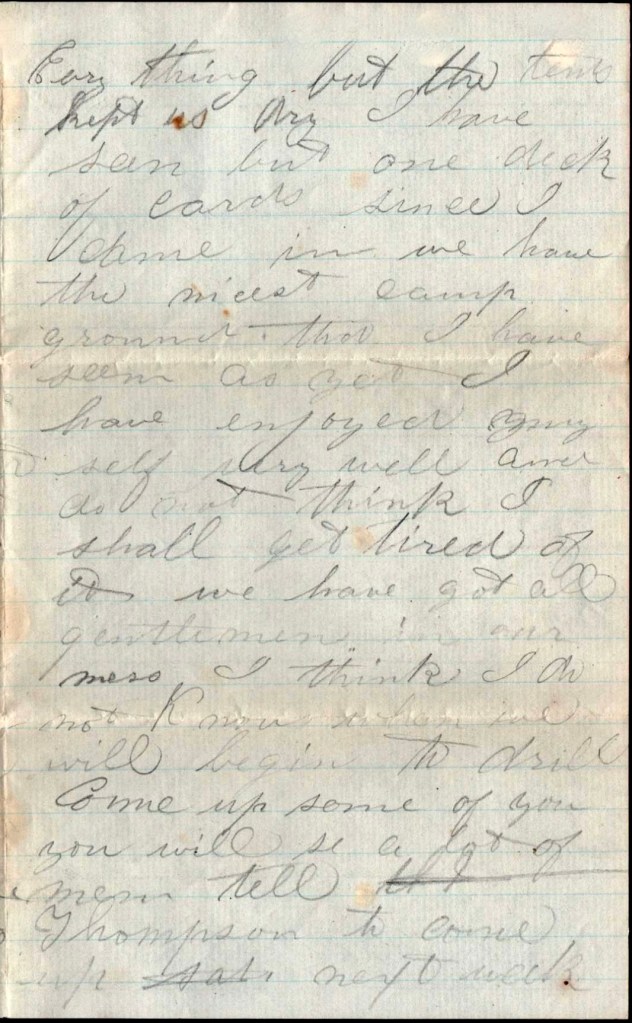 Evry thing but the tents
kept us dry I have
san but one deck
of cards since I
came in we have
the nicest camp
ground that I have
seem as yet I
have enjoyed my
self very well and
do not think I
shall get tired of
it we have got all
gentlemen in our
mess I think I do
not Know when we
will begin to drill
Come up some of you
you will se a lot of
mem tell
Thompson to come
up next week